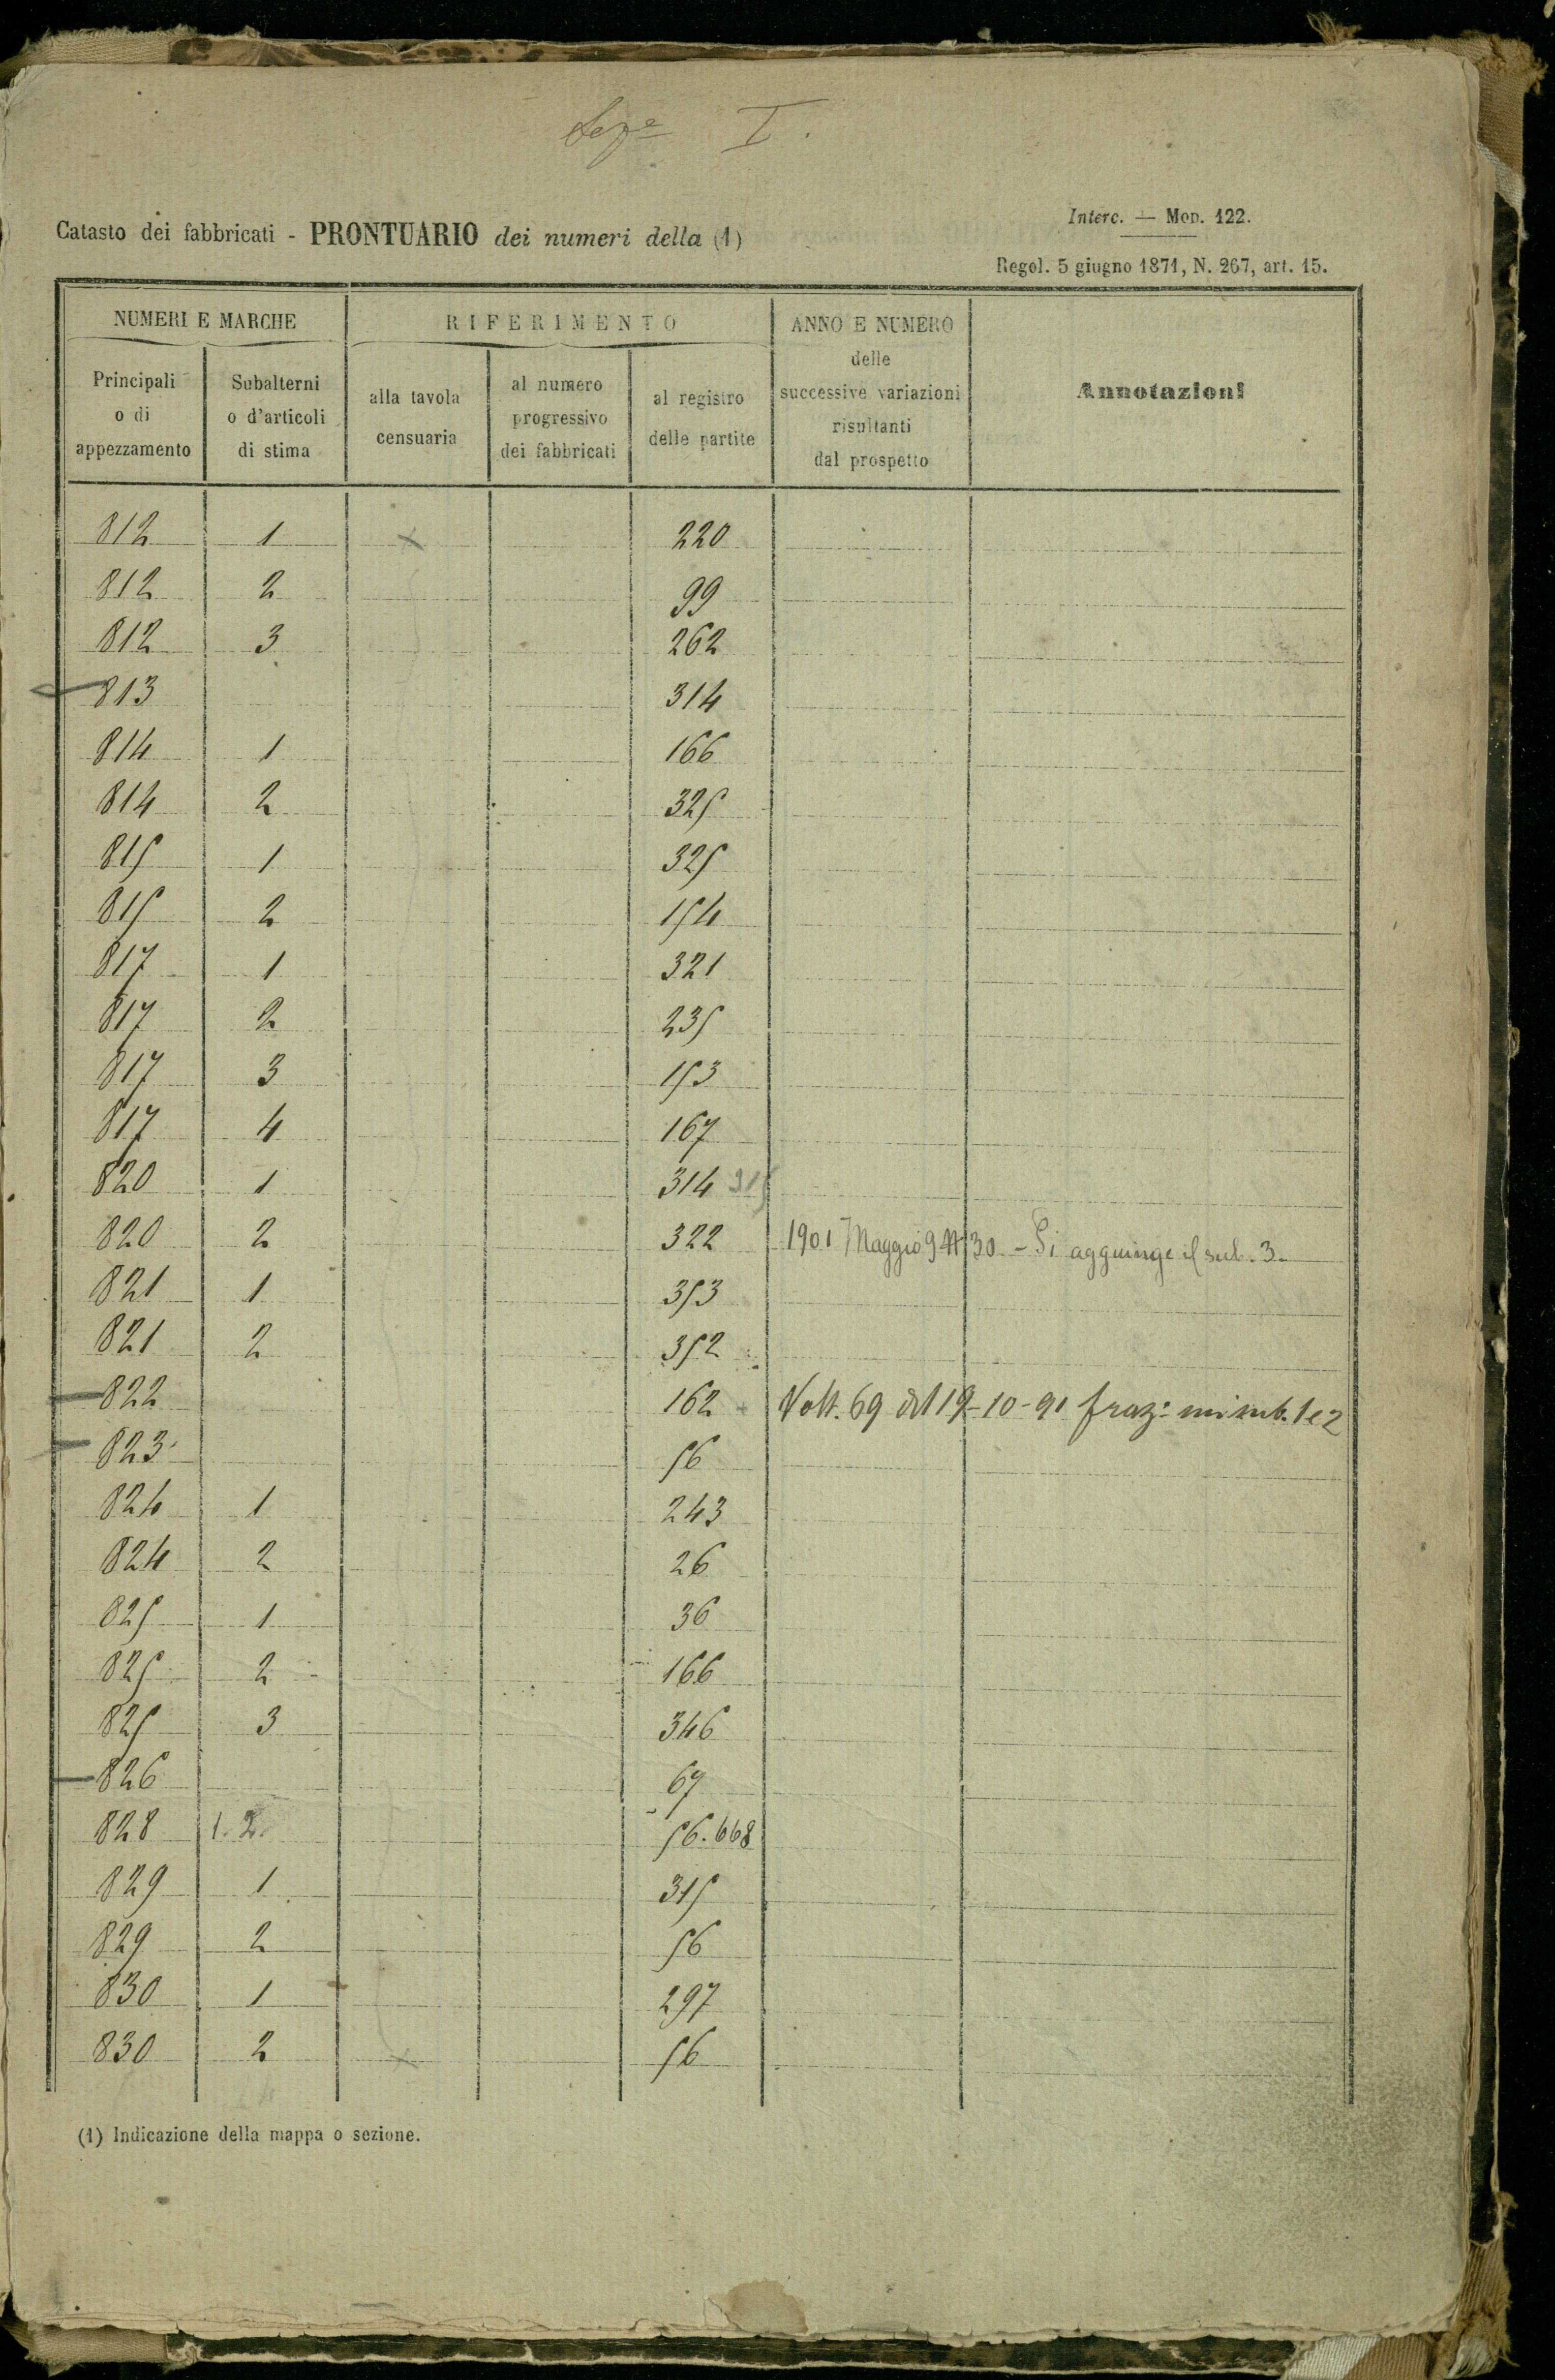 Seze I.
Catasto dei fabbricati - PRONTUARIO dei numeri della (1)
Interc. — Mod. 122.
Regol. 5 giugno 1871, N. 267, art. 15.
NUMERI E MARCHE
RIFERIMENTO
ANNO E NUMERO
delle
successive variazioni
risultanti
dal prospetto
Annotazioni
Principali
o di
appezzamento
Subalterni
o d'articoli
di stima
alla tavola
censuaria
al numero
progressivo
dei fabbricati
al registro
delle partite
812 1 220
812 2 99
812 3 262
813 314
814 1 166
814 2 325
815 1 325
815 2 154
817 1 321
817 2 235
817 3 153
817 4 167
820 1 314 315
820 2 322 1901 Maggio 9 30 - Si aggiunge il sub. 3.
821 1 353
821 2 352
822 162 Volt. 69 del 19-10-91 fraz: sub. 1 e 2
823 56
824 1 243
824 2 26
825 1 36
825 2 166
825 3 346
826 67
828 1.2. 56.668
829 1 315
829 2 56
830 1 297
830 2 56
(1) Indicazione della mappa o sezione.